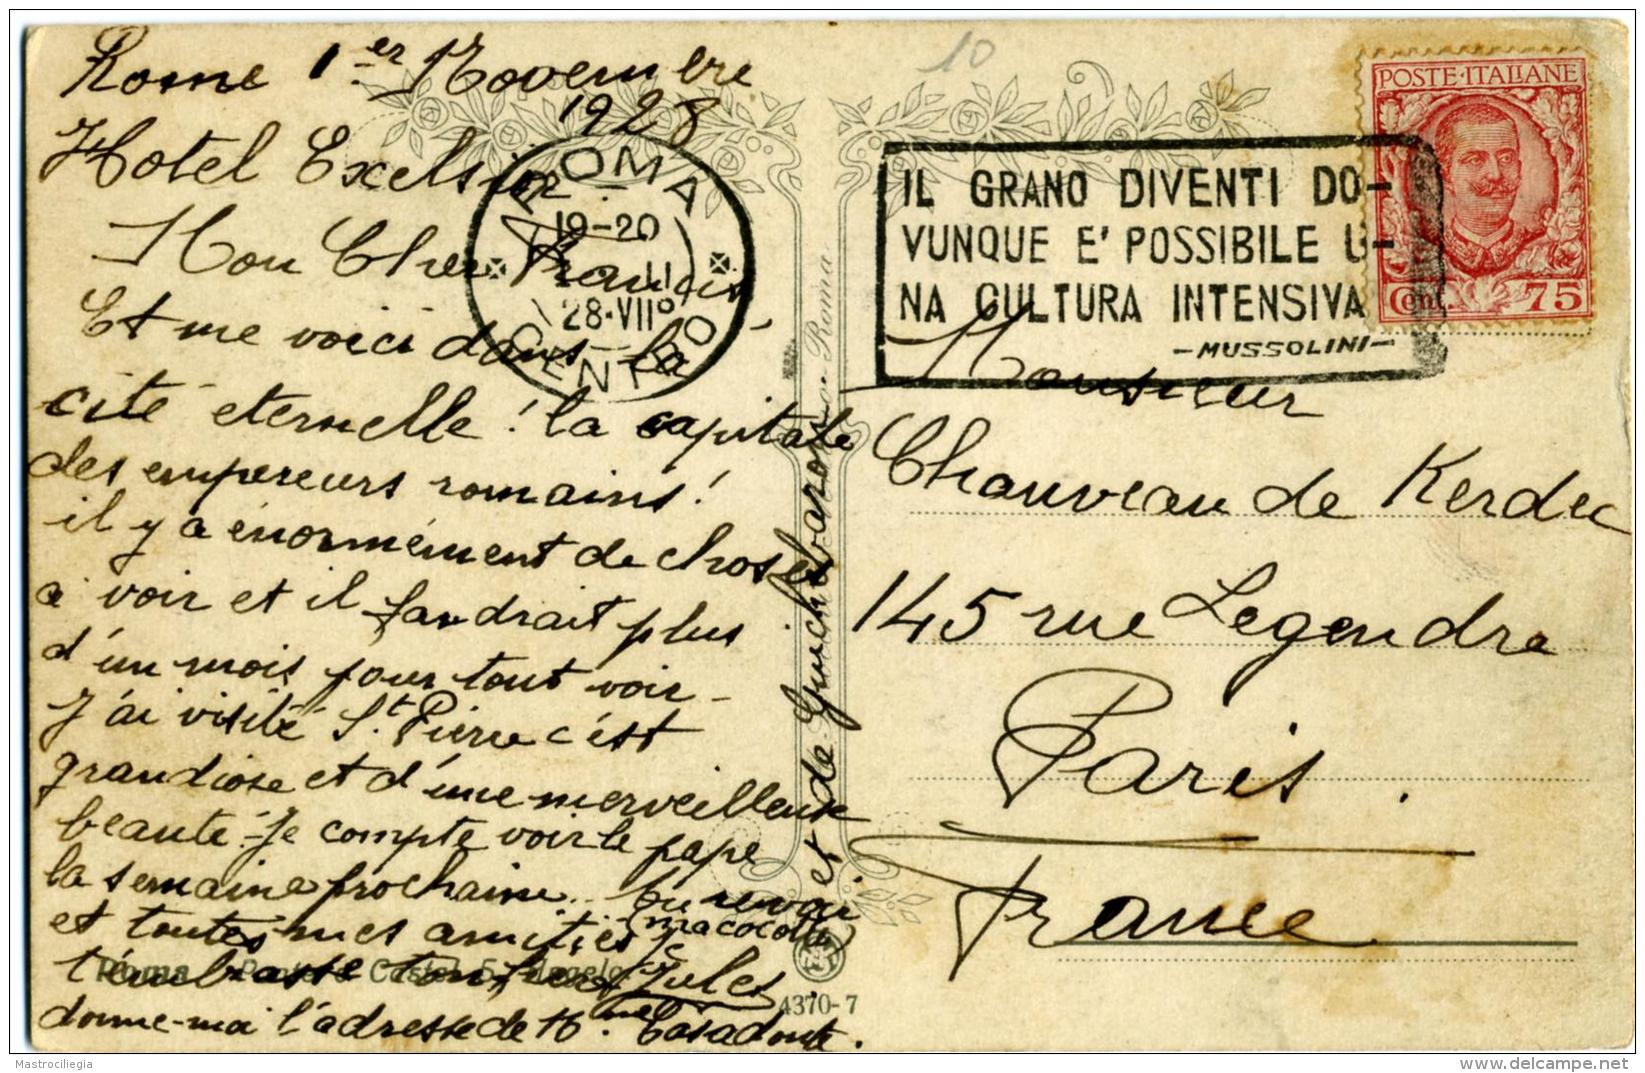 Rome 1er Novembre
1928
Hotel Excelsior
Mon Cher Francis
Et me voici dans la
cité éternelle ! la capitale
des empereurs romains !
il y a énormément de choses
à voir et il faudrait plus
d'un mois pour tout voir -
J'ai visité St. Pierre c'est
grandiose et d'une merveilleuse
beauté. Je compte voir le pape
la semaine prochaine. Au revoir
et toutes mes amitiés
(ma cocotte)
t'embrasse ton Jules
donne-moi l'adresse de Casadonte.
et de Guichebaron
Roma - Ponte e Castel S. Angelo
4370-7
10
ROMA
19-20
2 . 11
28·VII
CENTRO
IL GRANO DIVENTI DO-
VUNQUE E' POSSIBILE U-
NA CULTURA INTENSIVA
-MUSSOLINI-
POSTE·ITALIANE
Cent. 75
Monsieur
Chauveau de Kerdec
145 rue Legendre
Paris.
France
Roma
Mastrociliegia
delcampe.net